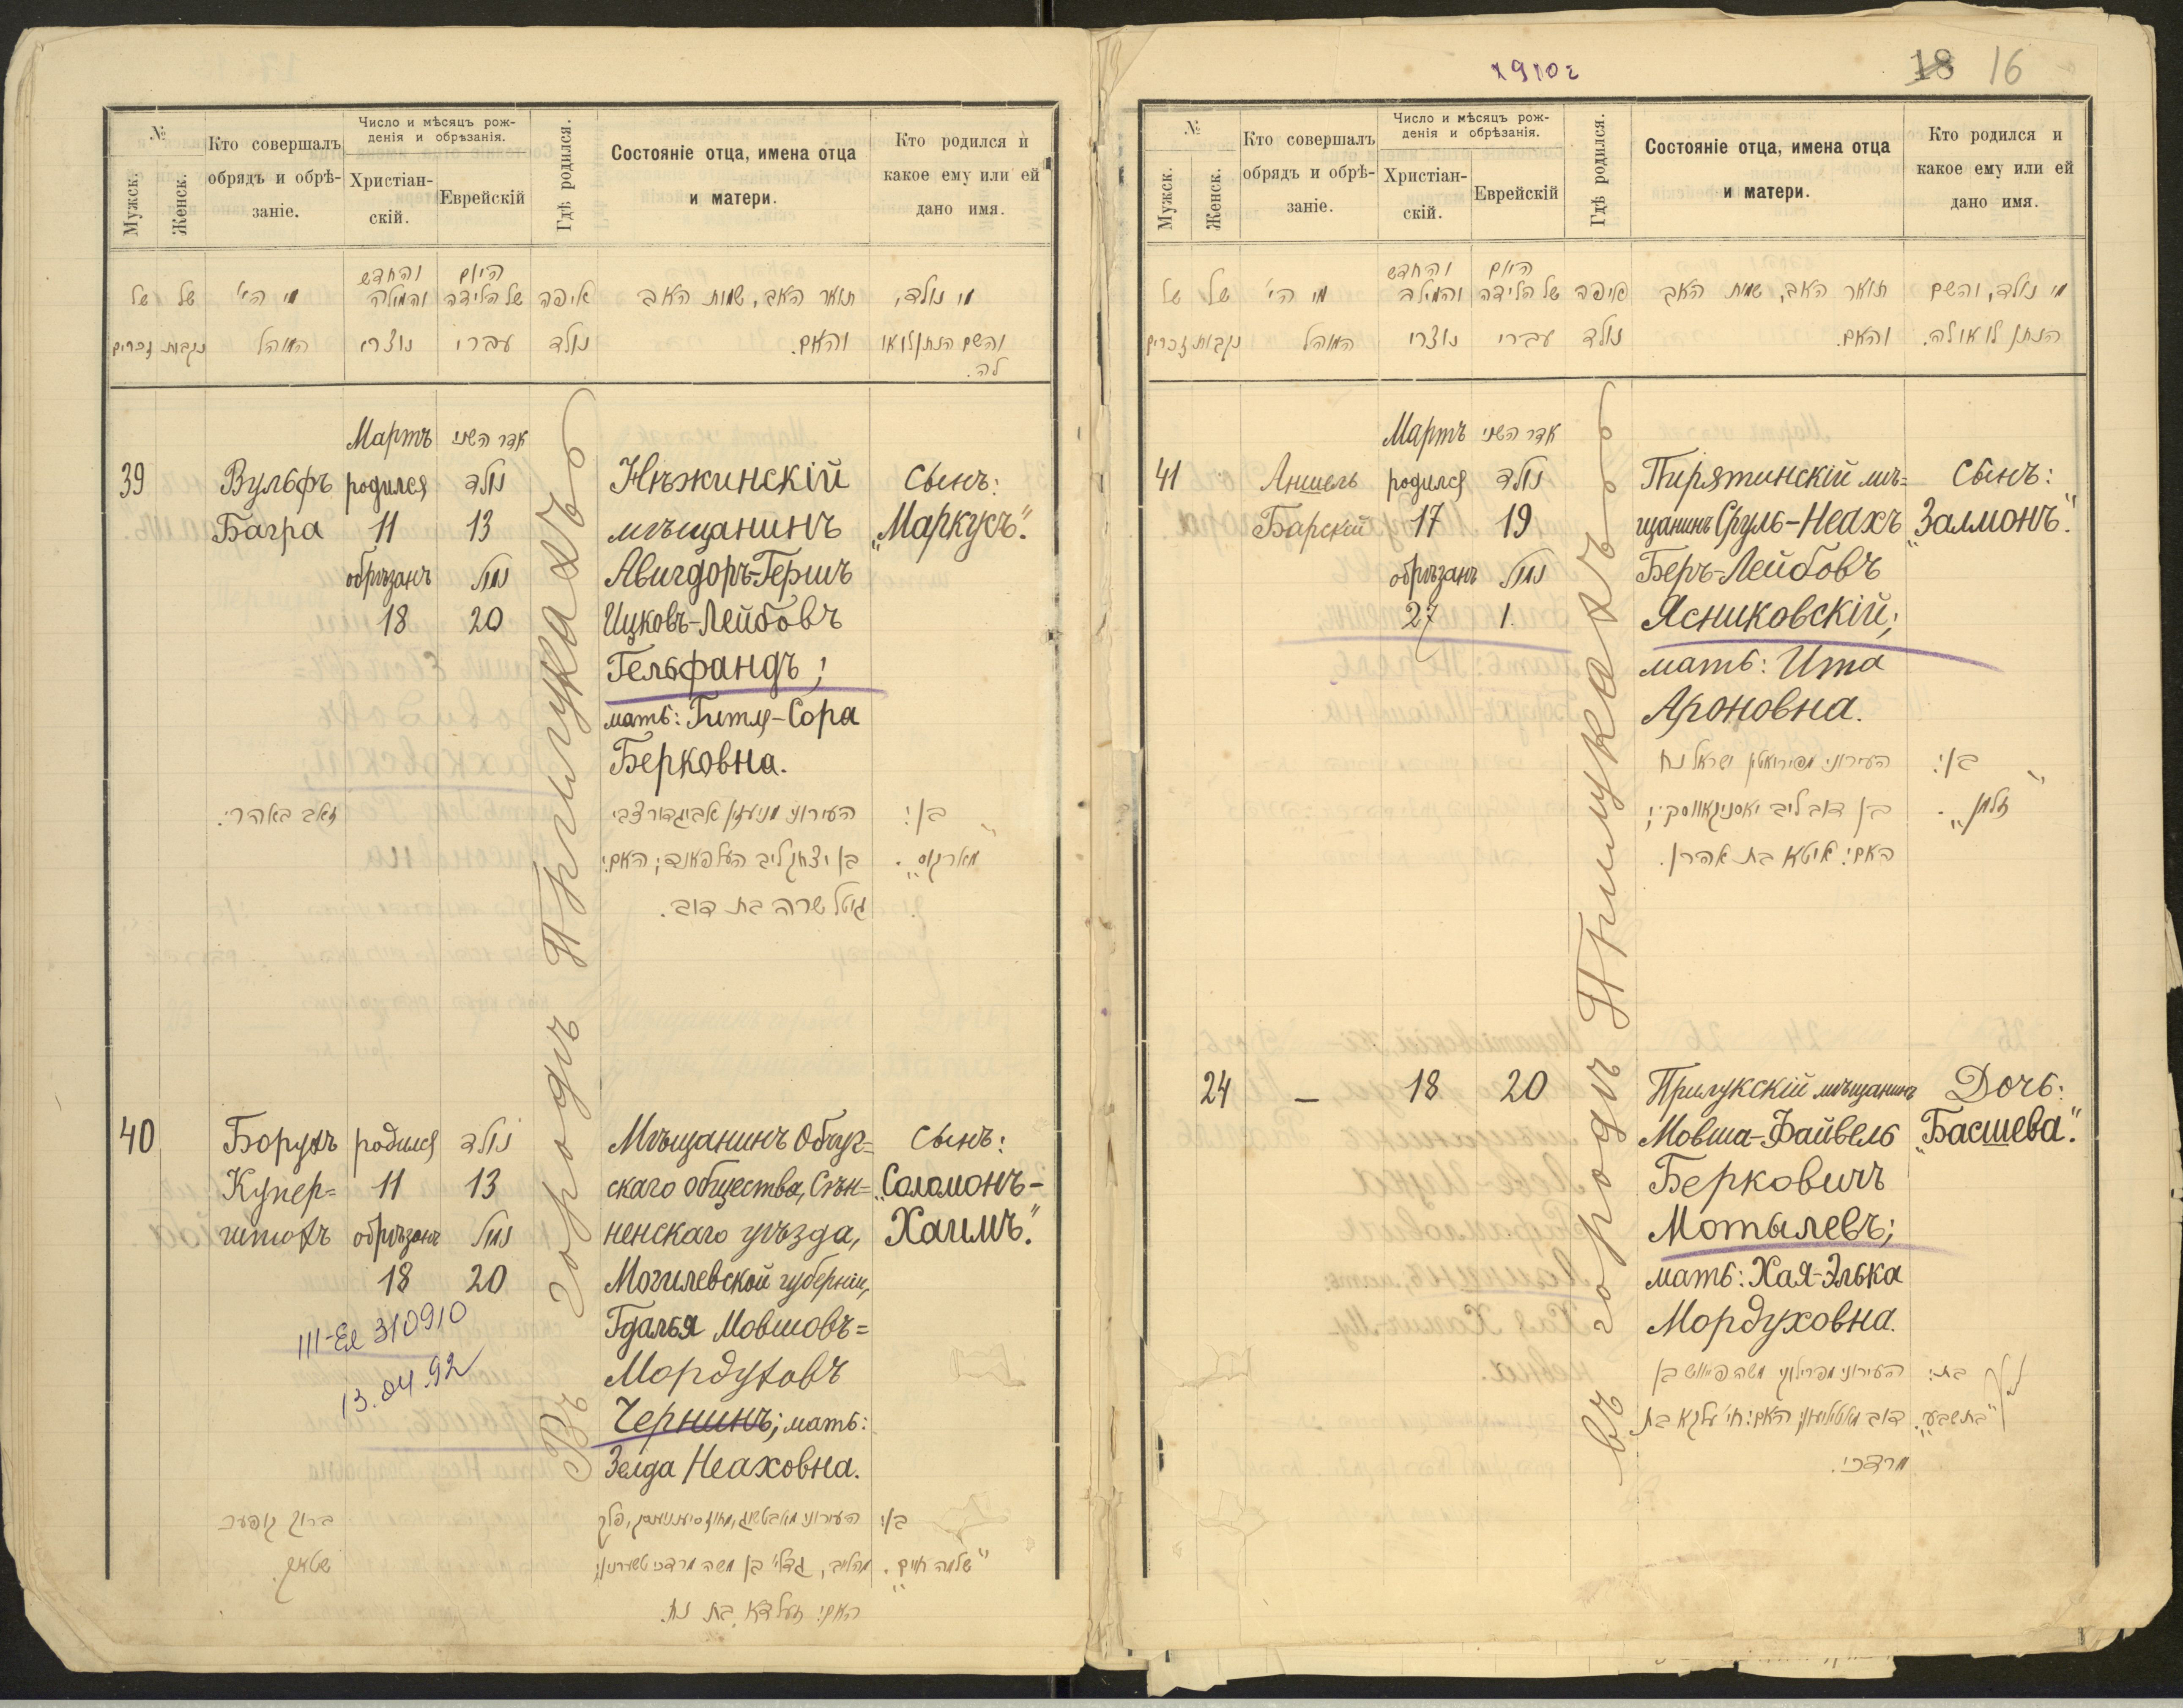 №
Мужск.
Женск.
Кто совершалъ
обрядъ и обрѣ-
заніе.
Число и мѣсяцъ рож-
денія и обрѣзанія.
Христіан-
скій.
Еврейскій
Гдѣ родился.
Состояніе отца, имена отца
и матери.
Кто родился и
какое ему или ей
дано имя.
היום והחדש
של של מי הי' והמילה של הלידה איפה תואר האב, שמות האב מי נולד,
זכרים נקבות המוהל נוצרי עברי נולד והאם. והשם הנתן לו או
לה.
Въ городѣ Прилукахъ
Мартъ אדר השני
39 Вульфъ родился נולד Нѣжинскій Сынъ:
Багра 11 13 мѣщанинъ „Маркусъ“.
обрѣзанъ נמול Авигдоръ-Гершъ
18 20 Ицковъ-Лейбовъ
Гельфандъ;
мать: Гитля-Сора
Берковна.
זאב באהרי. העירוני מניעזין אביגדור צבי בן:
בן יצחק ליב העלפאנד; האם: „מארקוס“.
גיטל שרה בת דוב.
40 Борухъ родился נולד Мѣщанинъ Обчуг= Сынъ:
Купер= 11 13 скаго общества, Сѣн= „Соломонъ-
штохъ обрѣзанъ נמול ненскаго уѣзда, Хаимъ“.
18 20 Могилевской губерніи,
III-Ея 310910
13.04.92
Гдалья Мовшовъ=
Мордуховъ
Чернинъ; мать:
Зелда Неаховна.
ברוך קופער בן:
שטאך. גדלי' בן משה מרדכי טשערנין; „שלמה חיים“.
האם: זעלדא בת נח.
1910г
18 16
№
Мужск.
Женск.
Кто совершалъ
обрядъ и обрѣ-
заніе.
Число и мѣсяцъ рож-
денія и обрѣзанія.
Христіан-
скій.
Еврейскій
Гдѣ родился.
Состояніе отца, имена отца
и матери.
Кто родился и
какое ему или ей
дано имя.
היום והחדש
של של מי הי' והמילה של הלידה איפה תואר האב, שמות האב מי נולד, והשם
זכרים נקבות המוהל נוצרי עברי נולד והאם. הנתן לו או לה.
въ городѣ Прилукахъ
Мартъ אדר השני
41 Аншель родился נולד Пирятинскій мѣ= Сынъ:
Барскій 17 19 щанинъ Сруль-Неахъ „Залмонъ“.
обрѣзанъ נמול Беръ-Лейбовъ
27 1. Ясниковскій;
мать: Ита
Ароновна.
העירוני מפיריאטין ישראל נח בן:
בן דוב ליב יאסניקאווסקי; „זלמן“.
האם: איטא בת אהרן.
24 — 18 20 Прилукскій мѣщанинъ Дочь:
Мовша-Файвель „Басшева“.
Берковичъ
Мотылевъ;
мать: Хая-Элька
Мордуховна.
העירוני מפרילוקי משה פייוויש בן בת:
דוב מאטילעוו; האם: חי' עלקא בת „בת שבע“.
מרדכי.